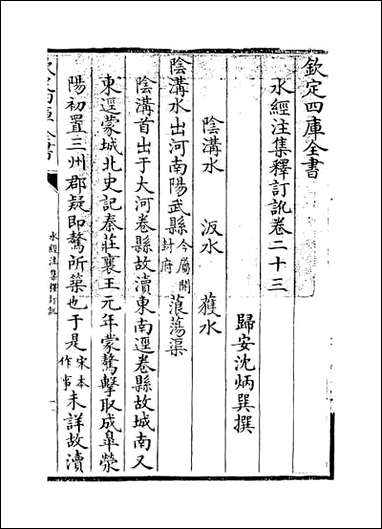 欽定四庫全書
水經注集釋訂訛卷二十三
歸安沈炳巽撰
陰溝水 汳水 獲水
陰溝水出河南陽武縣今屬開封府蒗蕩渠
陰溝首出于大河卷縣故瀆東南逕卷縣故城南又
東逕蒙城北史記秦莊襄王元年蒙驁擊取成臯滎
陽初置三川郡疑即驁所築也于是宋本作事未詳故瀆
欽定四庫全書
水經注集釋訂訛
一